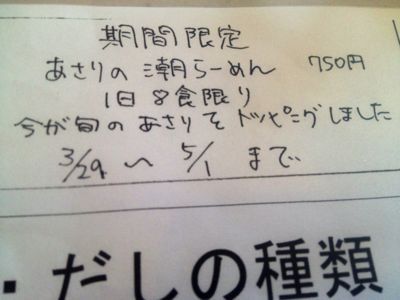 期間限定
あさりの潮らーめん 750円
1日8食限り
今が旬のあさりをトッピングしました
3/29 〜 5/1 まで
・だしの種類